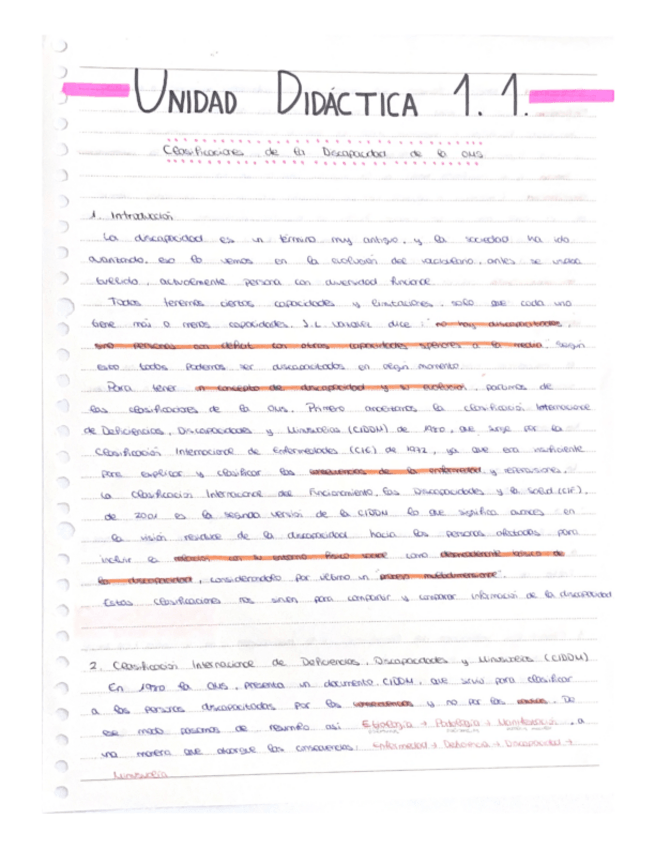 UNIDAD DIDÁCTICA 1.1.
Clasificaciones de la Discapacidad de la OMS
1. Introducción
La discapacidad es un término muy antiguo, y la sociedad ha ido
avanzando, eso lo vemos en la evolución del vocabulario, antes se
tullido, actualmente persona con diversidad funcional.
Todos tenemos ciertas capacidades y limitaciones, solo que cada uno
tiene más o menos capacidades. J.L. dice: "no hay discapacitados,
sino personas con déficit con otras capacidades superiores a la media. Según
esto todos podemos ser discapacitados en algún momento.
Para tener un concepto de discapacidad y su evolución, partimos de
las clasificaciones de la OMS. Primero la Clasificación Internacional
de Deficiencias, Discapacidades y Minusvalías (CIDDM) de 1980, que surge por la
Clasificación Internacional de Enfermedades (CIE) de 1972, ya que era insuficiente
para explicar y clasificar las consecuencias de la enfermedad y repercusiones.
La Clasificación Internacional del Funcionamiento, las Discapacidades y la Salud (CIF),
de 2001 es la segunda versión de la CIDDM lo que significa avances en
la visión de la discapacidad hacia las personas afectadas para
incluir la relación con su entorno físico social como desencadenante básico de
la discapacidad, considerándolo por último un "proceso multidimensional".
Estas clasificaciones nos sirven para compartir y comparar información de la discapacidad
2. Clasificación Internacional de Deficiencias, Discapacidades y Minusvalías (CIDDM)
En 1980 la OMS, presenta un documento CIDDM, que sirvió para clasificar
a las personas discapacitadas por las consecuencias y no por las causas. De
ese modo pasamos de resumirlo así Etiología → Patología → Manifestación, a
una manera que abarque las consecuencias: Enfermedad → Deficiencia → Discapacidad →
Minusvalía